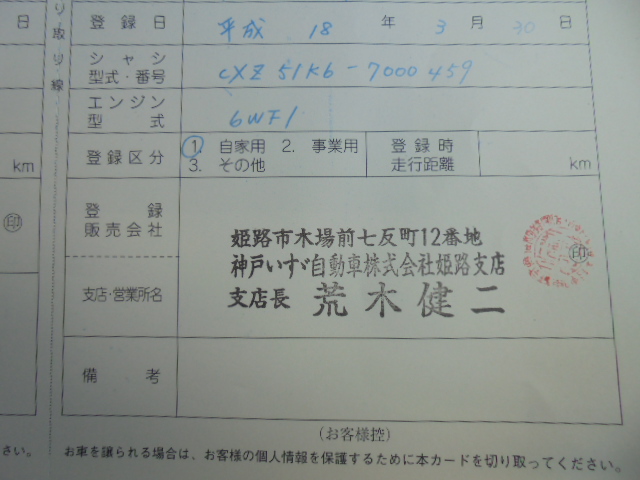 り取り線
日
登録日 平成 18 年 3 月 30 日
シャシ
型式・番号 CXZ51K6-7000459
エンジン
型式 6WF1
登録区分 1. 自家用 2. 事業用
3. その他
登録時
走行距離 km
km
印
登録
販売会社
支店・営業所名
姫路市木場前七反町12番地
神戸いすゞ自動車株式会社姫路支店
支店長 荒木健二
印
備考
(お客様控)
さい。
お車を譲られる場合は、お客様の個人情報を保護するために本カードを切り取ってください。